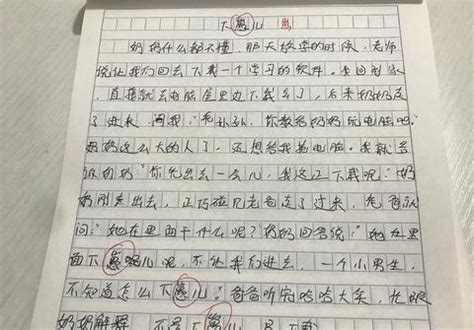 下崽儿
奶奶什么都不懂,那天放学的时候,老师
说让我们回去下载一个学习的软件。来回到家
,直接就去电脑屋里边下载去了,后来奶奶
了进来,问我:"你教给奶奶玩电脑吧。"
奶奶这么大的人了,还想给我抢电脑。我就告
诉奶奶:"你先出去一会儿,我这正下载呢。"奶
奶刚走出去,正巧碰见老爸走了过来,老爸就
问:"她在里面干什么呢?"奶奶回答说:"她在里
面下崽崽儿呢,不让我们进去。一个小男生,
不知道怎么下崽儿。"爸爸听完哈哈大笑,忙跟
奶奶解释 不是下崽儿 是下